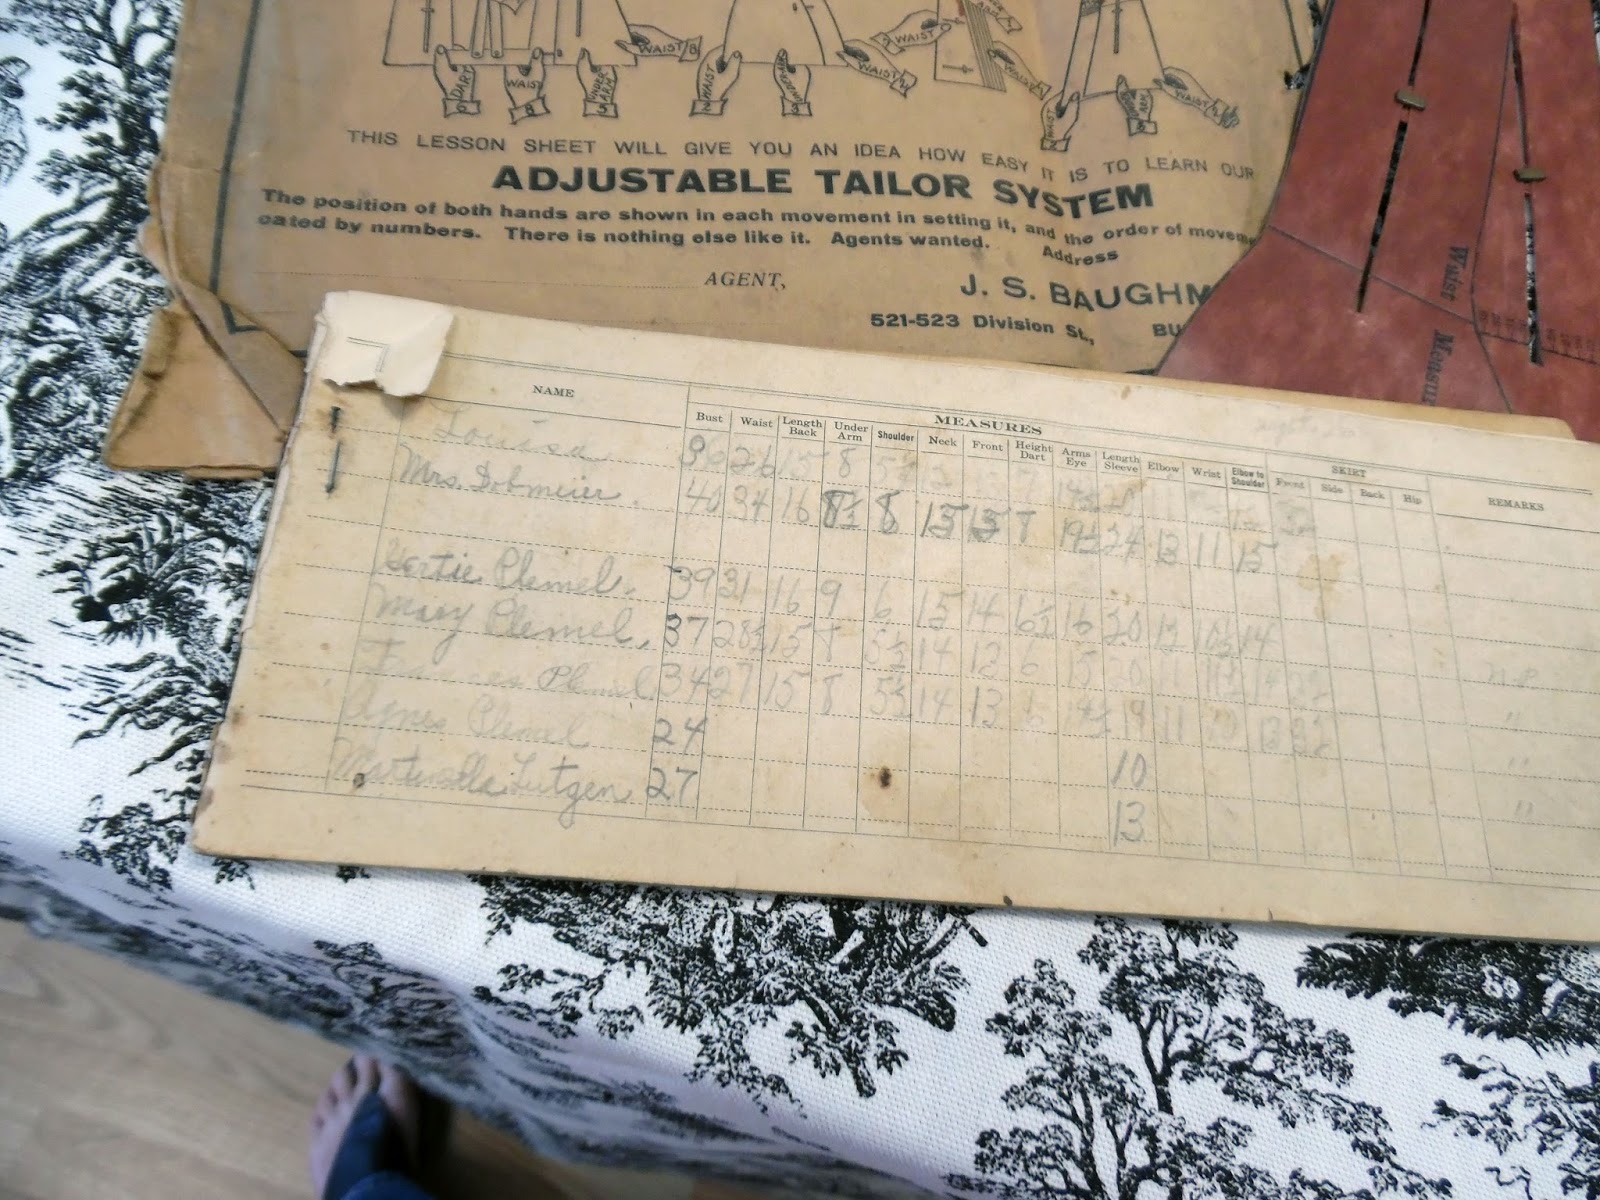 WAIST 8
DART 6
WAIST 8
UNDER ARM 5
WAIST
WAIST
WAIST
THIS LESSON SHEET WILL GIVE YOU AN IDEA HOW EASY IT IS TO LEARN OUR
ADJUSTABLE TAILOR SYSTEM
The position of both hands are shown in each movement in setting it, and the order of movem
cated by numbers. There is nothing else like it. Agents wanted.
Address
AGENT,
J. S. BAUGHM
521-523 Division St., BU
Waist
Measu
NAME MEASURES SKIRT REMARKS
Bust Waist Length Back Under Arm Shoulder Neck Front Height Dart Arms Eye Length Sleeve Elbow Wrist Elbow to Shoulder Front Side Back Hip
Louisa 36 26 15 8 5½ 12
Mrs. Dobmeier. 40 34 16 8½ 8 15 15 8 19½ 24 13 11 15
Gertie Plemel. 39 31 16 9 6 15 14 6½ 16 20 12 10½ 14
Mary Plemel. 37 28½ 15 8 5½ 14 12 6 15 20 11
Frances Plemel 34 27 15 8 5½ 14 13 6 14½ 19 11 10 13 32 "
Agnes Plemel 24 10 "
Lutgen 27 13 "